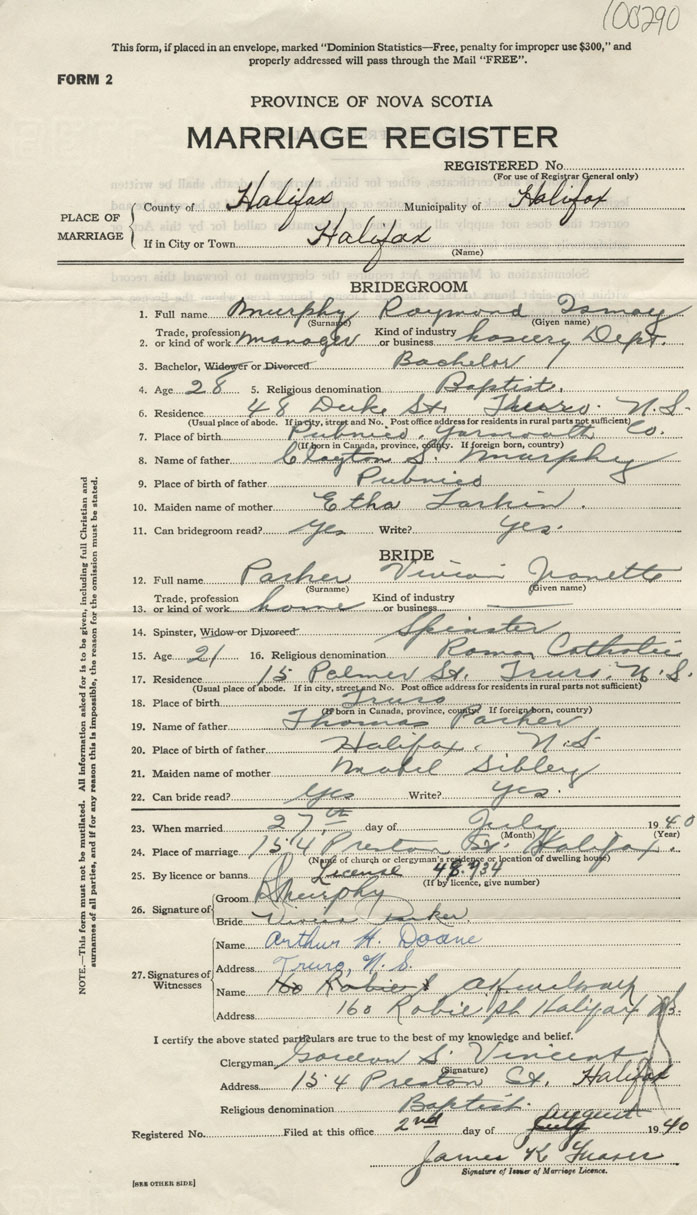 100290
This form, if placed in an envelope, marked "Dominion Statistics—Free, penalty for improper use $300," and
properly addressed will pass through the Mail "FREE".
FORM 2
PROVINCE OF NOVA SCOTIA
MARRIAGE REGISTER
REGISTERED No.
(For use of Registrar General only)
PLACE OF MARRIAGE
County of Halifax Municipality of Halifax
If in City or Town Halifax
(Name)
BRIDEGROOM
1. Full name Murphy Raymond Ismay
(Surname) (Given name)
2. Trade, profession or kind of work manager Kind of industry or business hosiery Dept.
3. Bachelor, Widower or Divorced Bachelor
4. Age 28 5. Religious denomination Baptist.
6. Residence 48 Duke St. Truro. N.S.
(Usual place of abode. If in city, street and No. Post office address for residents in rural parts not sufficient)
7. Place of birth Pubnico. Yarmouth Co.
(If born in Canada, province, county. If foreign born, country)
8. Name of father Clayton S. Murphy
9. Place of birth of father Pubnico
10. Maiden name of mother Etha Larkin.
11. Can bridegroom read? Yes Write? Yes.
BRIDE
12. Full name Parker Vivian Jeanette
(Surname) (Given name)
13. Trade, profession or kind of work home Kind of industry or business —
14. Spinster, Widow or Divorced Spinster
15. Age 21 16. Religious denomination Roman Catholic
17. Residence 15 Palmer St. Truro. N.S.
(Usual place of abode. If in city, street and No. Post office address for residents in rural parts not sufficient)
18. Place of birth Truro
(If born in Canada, province, county. If foreign born, country)
19. Name of father Thomas Parker
20. Place of birth of father Halifax. N.S
21. Maiden name of mother Mabel Sibley
22. Can bride read? Yes Write? Yes.
23. When married 27th day of July 1940
(Month) (Year)
24. Place of marriage 154 Preston St. Halifax.
(Name of church or clergyman's residence or location of dwelling house)
25. By licence or banns License 48934
(If by licence, give number)
26. Signature of
Groom Murphy
Bride Vivian Parker
27. Signatures of Witnesses
Name Arthur H. Doane
Address Truro, N.S.
Name 160 Robie S
Address 160 Robie St Halifax N.S.
I certify the above stated particulars are true to the best of my knowledge and belief.
Clergyman Gordon S. Vincent
(Signature)
Address 154 Preston St. Halifax
Religious denomination Baptist.
Registered No. Filed at this office 2nd day of July August 1940
James K Fraser
Signature of Issuer of Marriage Licence.
[SEE OTHER SIDE]
NOTE.—This form must not be mutilated. All information asked for is to be given, including full Christian and
surnames of all parties, and if for any reason this is impossible, the reason for the omission must be stated.